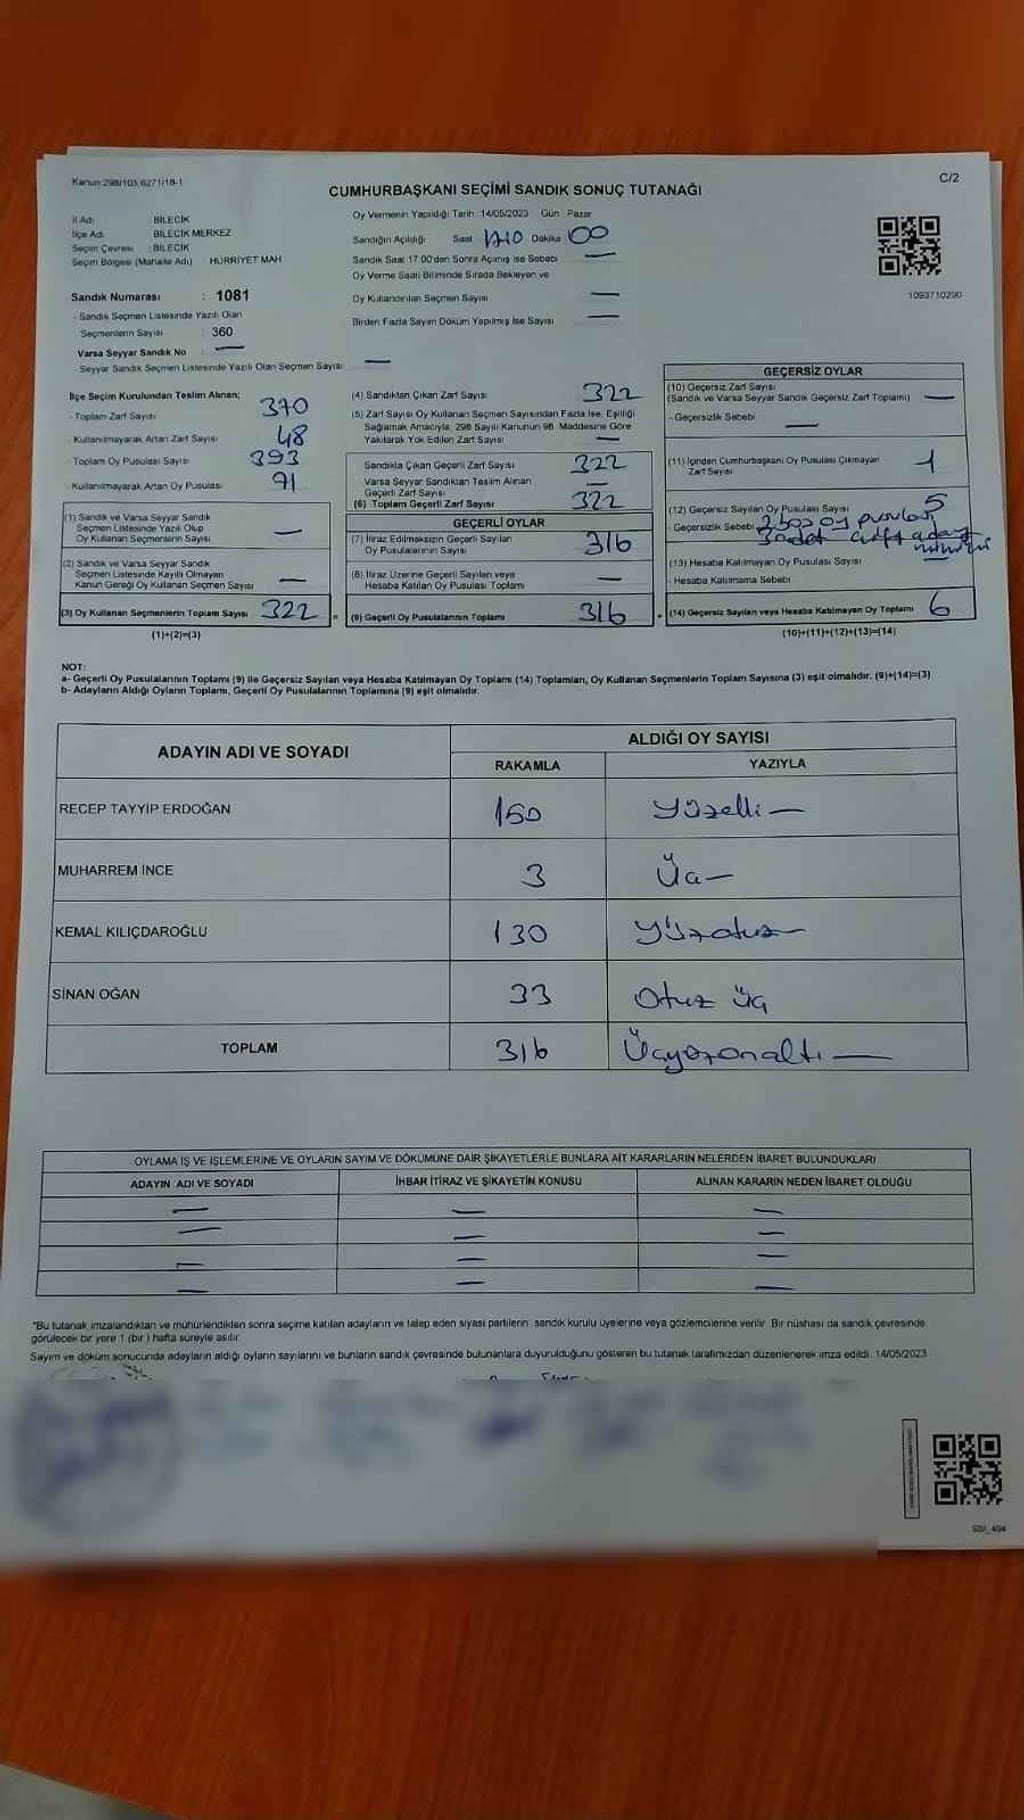 Kanun:298/105,6271/18-1
C/2
CUMHURBAŞKANI SEÇİMİ SANDIK SONUÇ TUTANAĞI
İl Adı : BİLECİK
İlçe Adı : BİLECİK MERKEZ
Seçim Çevresi : BİLECİK
Seçim Bölgesi (Mahalle Adı) HÜRRİYET MAH
Sandık Numarası : 1081
- Sandık Seçmen Listesinde Yazılı Olan
Seçmenlerin Sayısı : 360
Varsa Seyyar Sandık No : —
- Seyyar Sandık Seçmen Listesinde Yazılı Olan Seçmen Sayısı —
Oy Vermenin Yapıldığı Tarih 14/05/2023 Gün Pazar
Sandığın Açıldığı Saat Dakika 00
Sandık Saat 17:00'den Sonra Açılmış İse Sebebi —
Oy Verme Saati Bitiminde Sırada Bekleyen ve
Oy Kullandırılan Seçmen Sayısı —
Birden Fazla Sayım Döküm Yapılmış İse Sayısı —
1093710290
İlçe Seçim Kurulundan Teslim Alınan;
- Toplam Zarf Sayısı 370
- Kullanılmayarak Artan Zarf Sayısı 48
- Toplam Oy Pusulası Sayısı 393
- Kullanılmayarak Artan Oy Pusulası 91
(1) Sandık ve Varsa Seyyar Sandık
Seçmen Listesinde Yazılı Olup
Oy Kullanan Seçmenlerin Sayısı —
(2) Sandık ve Varsa Seyyar Sandık
Seçmen Listesinde Kayıtlı Olmayan
Kanun Gereği Oy Kullanan Seçmen Sayısı —
(3) Oy Kullanan Seçmenlerin Toplam Sayısı 322 =
(1)+(2)=(3)
(4) Sandıktan Çıkan Zarf Sayısı 322
(5) Zarf Sayısı Oy Kullanan Seçmen Sayısından Fazla İse, Eşitliği
Sağlamak Amacıyla; 298 Sayılı Kanunun 98. Maddesine Göre
Yakılarak Yok Edilen Zarf Sayısı —
Sandıkta Çıkan Geçerli Zarf Sayısı 322
Varsa Seyyar Sandıktan Teslim Alınan
Geçerli Zarf Sayısı —
(6) Toplam Geçerli Zarf Sayısı 322
GEÇERLİ OYLAR
(7) İtiraz Edilmeksizin Geçerli Sayılan
Oy Pusulalarının Sayısı 316
(8) İtiraz Üzerine Geçerli Sayılan veya
Hesaba Katılan Oy Pusulası Toplamı —
(9) Geçerli Oy Pusulalarının Toplamı 316 +
GEÇERSİZ OYLAR
(10) Geçersiz Zarf Sayısı
(Sandık ve Varsa Seyyar Sandık Geçersiz Zarf Toplamı) —
- Geçersizlik Sebebi —
(11) İçinden Cumhurbaşkanı Oy Pusulası Çıkmayan
Zarf Sayısı 1
(12) Geçersiz Sayılan Oy Pusulası Sayısı 5
- Geçersizlik Sebebi 2 boş oy pusulası
3 adet çift aday
mührü
(13) Hesaba Katılmayan Oy Pusulası Sayısı —
- Hesaba Katılmama Sebebi
(14) Geçersiz Sayılan veya Hesaba Katılmayan Oy Toplamı 6
(10)+(11)+(12)+(13)=(14)
NOT:
a- Geçerli Oy Pusulalarının Toplamı (9) ile Geçersiz Sayılan veya Hesaba Katılmayan Oy Toplamı (14) Toplamları, Oy Kullanan Seçmenlerin Toplam Sayısına (3) eşit olmalıdır. (9)+(14)=(3)
b- Adayların Aldığı Oyların Toplamı, Geçerli Oy Pusulalarının Toplamına (9) eşit olmalıdır.
ADAYIN ADI VE SOYADI ALDIĞI OY SAYISI
RAKAMLA YAZIYLA
RECEP TAYYİP ERDOĞAN 150 Yüzelli —
MUHARREM İNCE 3 Üç —
KEMAL KILIÇDAROĞLU 130 Yüzotuz —
SİNAN OĞAN 33 Otuz üç
TOPLAM 316 Üçyüzonaltı —
OYLAMA İŞ VE İŞLEMLERİNE VE OYLARIN SAYIM VE DÖKÜMÜNE DAİR ŞİKAYETLERLE BUNLARA AİT KARARLARIN NELERDEN İBARET BULUNDUKLARI
ADAYIN ADI VE SOYADI İHBAR İTİRAZ VE ŞİKAYETİN KONUSU ALINAN KARARIN NEDEN İBARET OLDUĞU
— — —
— — —
— — —
— — —
"Bu tutanak imzalandıktan ve mühürlendikten sonra seçime katılan adayların ve talep eden siyasi partilerin sandık kurulu üyelerine veya gözlemcilerine verilir. Bir nüshası da sandık çevresinde
görülecek bir yere 1 (bir ) hafta süreyle asılır.
Sayım ve döküm sonucunda adayların aldığı oyların sayılarını ve bunların sandık çevresinde bulunanlara duyurulduğunu gösteren bu tutanak tarafımızdan düzenlenerek imza edildi. 14/05/2023